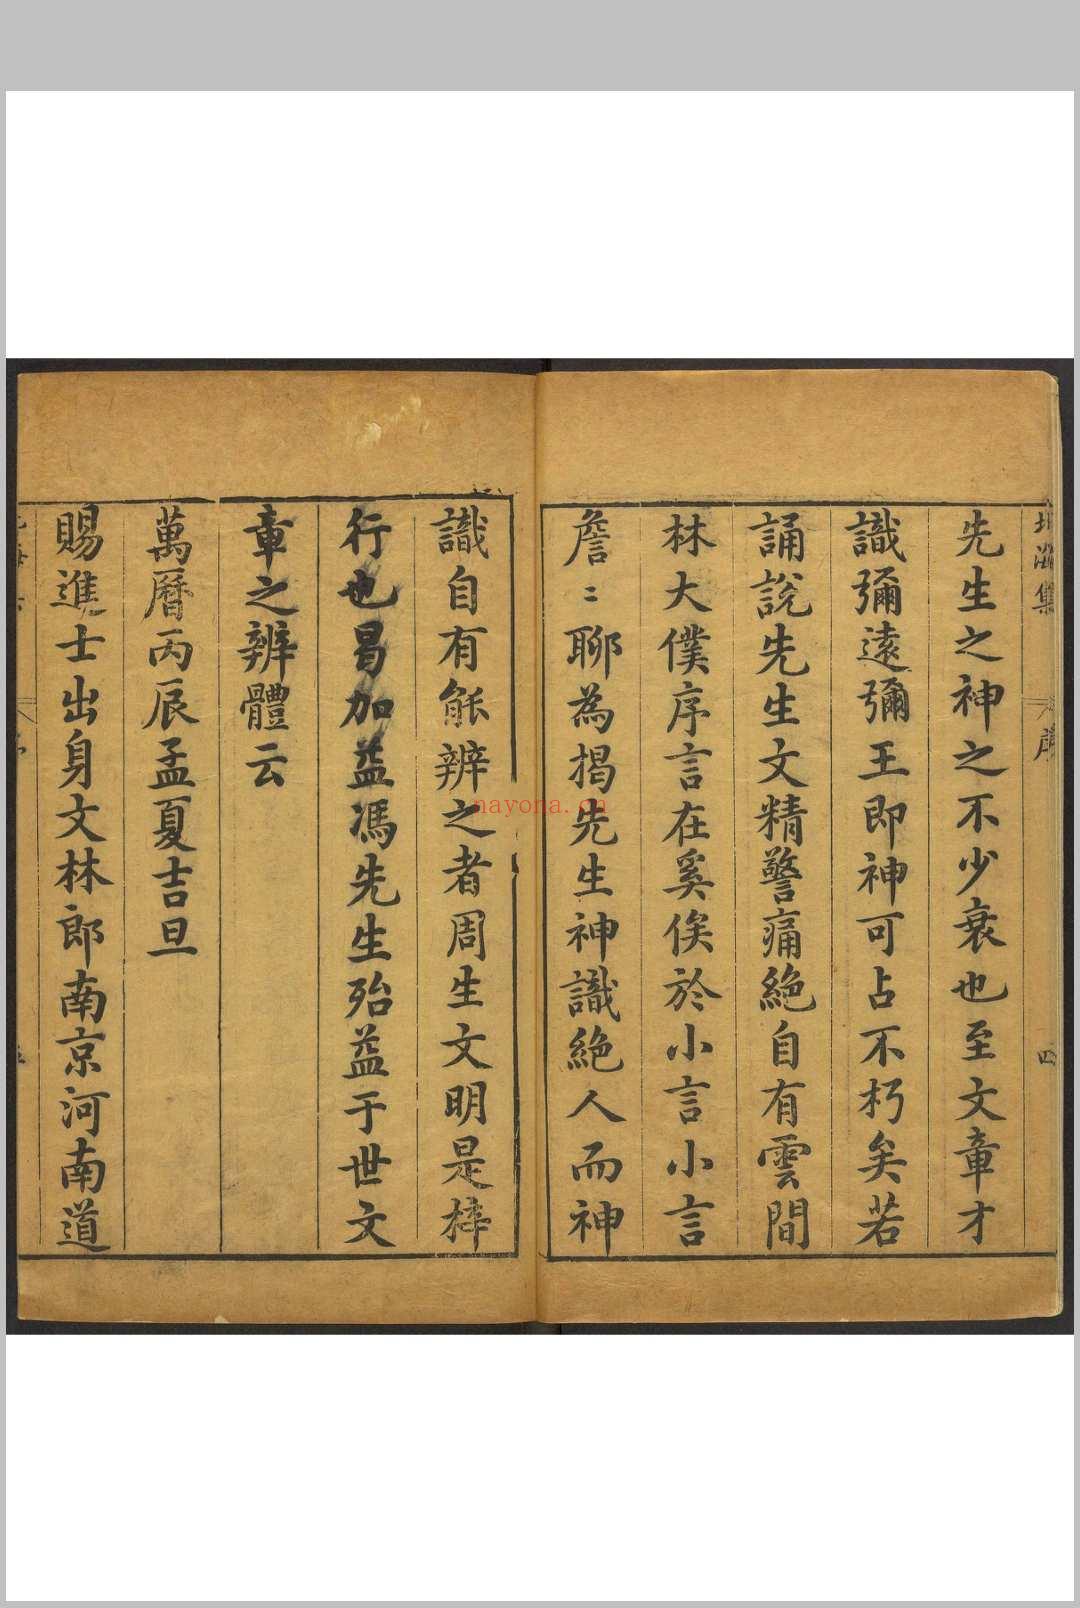 先生之神之不少衰也至文章才
識彌遠彌王即神可占不朽矣若
誦說先生文精警痛絕自有雲間
林大僕序言在奚俟於小言小言
詹〻聊為揭先生神識絕人而神
識自有能辨之者周生文明是梓
行也曷加益馮先生殆益于世文
章之辨體云
萬曆丙辰孟夏吉旦
賜進士出身文林郎南京河南道
集
序
四
nayona.cn